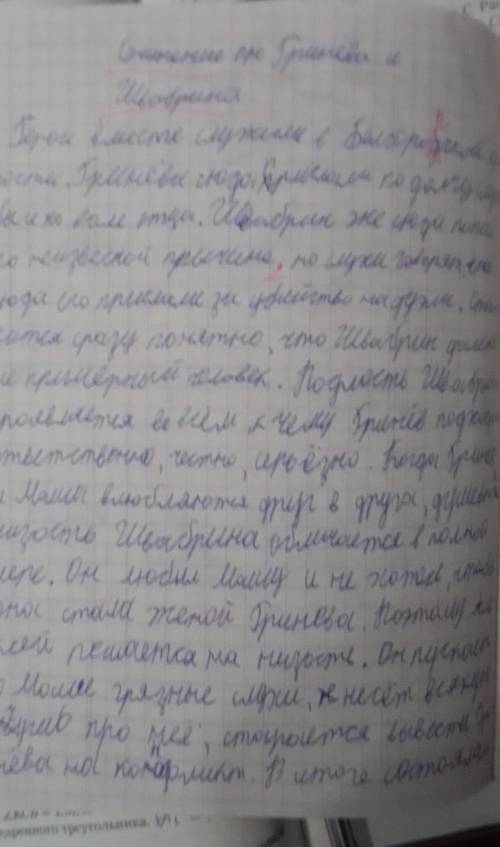 Сочинение про Гринёва и
Швабрина
Герои вместе служили в
ности. Гринёва сюда прислали по долгу
бы и по воле отца. Швабрин же сюда попал
по неизвесной причине, но слухи говорят, что
сюда его прислали за убийство на дуэли.
сразу понятно, что Швабрин далек
не примерный человек. Подлость
проявляется во всём, к чему Гринёв
ответственно, честно, серьёзно. Когда
и Маша влюбляются друг в друга,
низость Швабрина обличается в полной
мере. Он любил Машу и не хотел, чтобы
она стала женой Гринёва. Поэтому
решается на низость. Он пускает
о Маше грязные слухи, несёт
про неё, старается вывести
нёва на конфликт. В итоге
еренного треугольника.